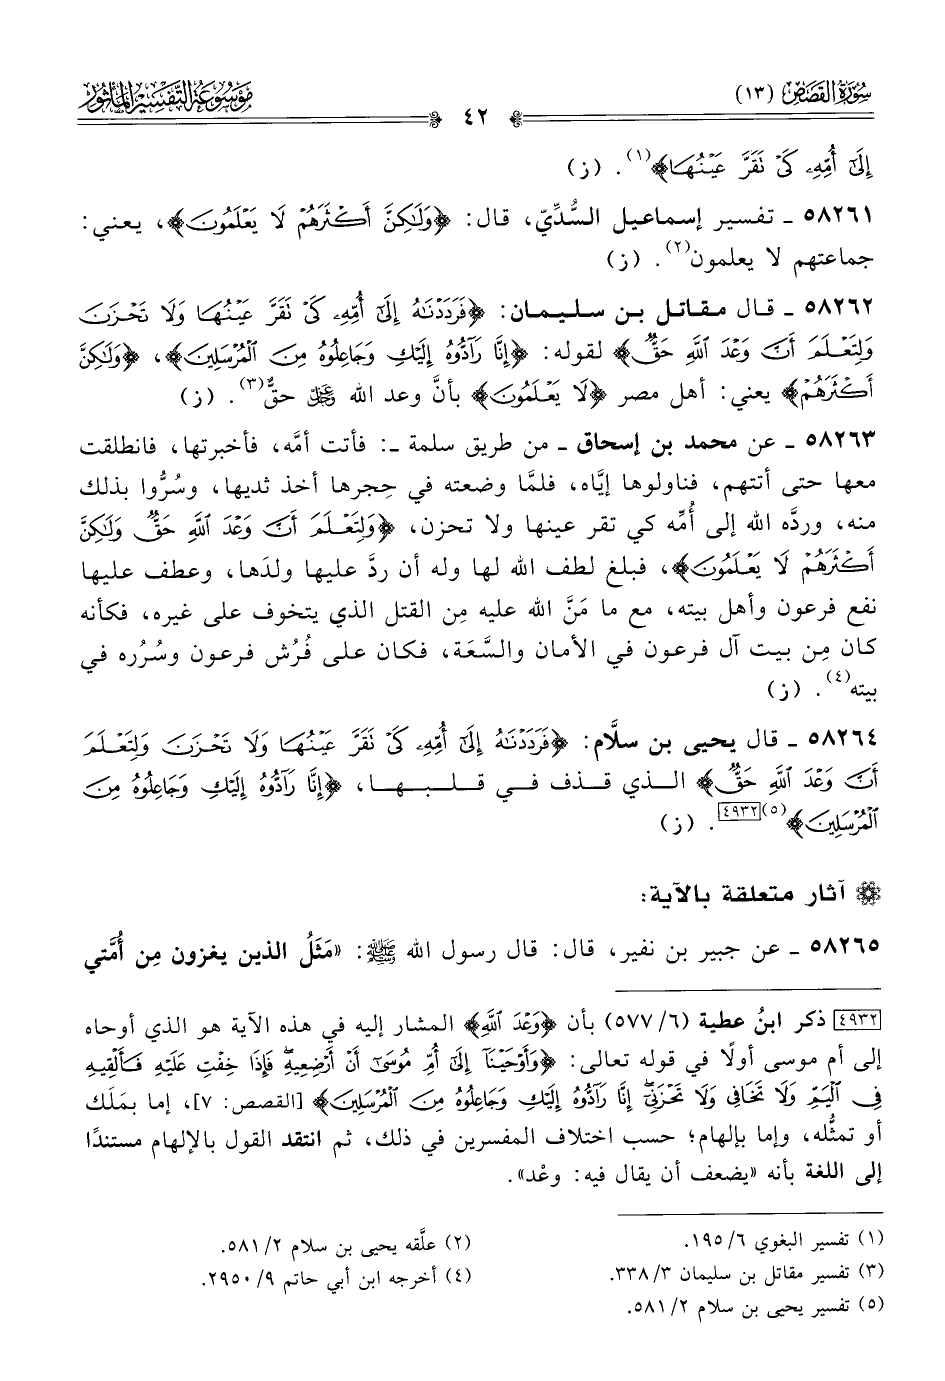 سورة القصص (١٣)
٤٢
موسوعة التفسير المأثور
إِلَىٰٓ أُمِّهِۦ كَىْ تَقَرَّ عَيْنُهَا﴾(١). (ز)
٥٨٢٦١ ـ تفسير إسماعيل السُّدِّيّ، قال: ﴿وَلَٰكِنَّ أَكْثَرَهُمْ لَا يَعْلَمُونَ﴾، يعني:
جماعتهم لا يعلمون(٢). (ز)
٥٨٢٦٢ ـ قال مقاتل بن سليمان: ﴿فَرَدَدْنَٰهُ إِلَىٰٓ أُمِّهِۦ كَىْ تَقَرَّ عَيْنُهَا وَلَا تَحْزَنَ
وَلِتَعْلَمَ أَنَّ وَعْدَ ٱللَّهِ حَقٌّ﴾ لقوله: ﴿إِنَّا رَآدُّوهُ إِلَيْكِ وَجَاعِلُوهُ مِنَ ٱلْمُرْسَلِينَ﴾، ﴿وَلَٰكِنَّ
أَكْثَرَهُمْ﴾ يعني: أهل مصر ﴿لَا يَعْلَمُونَ﴾ بأنَّ وعد الله ﷿ حقٌّ(٣). (ز)
٥٨٢٦٣ ـ عن محمد بن إسحاق ـ من طريق سلمة ـ: فأتت أمَّه، فأخبرتها، فانطلقت
معها حتى أتتهم، فناولوها إيَّاه، فلمَّا وضعته في حِجرها أخذ ثديها، وسُرُّوا بذلك
منه، وردَّه الله إلى أُمِّه كي تقر عينها ولا تحزن، ﴿وَلِتَعْلَمَ أَنَّ وَعْدَ ٱللَّهِ حَقٌّ وَلَٰكِنَّ
أَكْثَرَهُمْ لَا يَعْلَمُونَ﴾، فبلغ لطف الله لها وله أن ردَّ عليها ولدَها، وعطف عليها
نفع فرعون وأهل بيته، مع ما مَنَّ الله عليه مِن القتل الذي يتخوف على غيره، فكأنه
كان مِن بيت آل فرعون في الأمان والسَّعَة، فكان على فُرُش فرعون وسُرُره في
بيته(٤). (ز)
٥٨٢٦٤ ـ قال يحيى بن سلَّام: ﴿فَرَدَدْنَٰهُ إِلَىٰٓ أُمِّهِۦ كَىْ تَقَرَّ عَيْنُهَا وَلَا تَحْزَنَ وَلِتَعْلَمَ
أَنَّ وَعْدَ ٱللَّهِ حَقٌّ﴾ الذي قذف في قلبها، ﴿إِنَّا رَآدُّوهُ إِلَيْكِ وَجَاعِلُوهُ مِنَ
ٱلْمُرْسَلِينَ﴾(٥)[٤٩٣٢]. (ز)
آثار متعلقة بالآية:
٥٨٢٦٥ ـ عن جبير بن نفير، قال: قال رسول الله ﷺ: «مَثَلُ الذين يغزون مِن أُمَّتي
[٤٩٣٢] ذكر ابنُ عطية (٦/ ٥٧٧) بأن ﴿وَعْدَ ٱللَّهِ﴾ المشار إليه في هذه الآية هو الذي أوحاه
إلى أم موسى أولًا في قوله تعالى: ﴿وَأَوْحَيْنَآ إِلَىٰٓ أُمِّ مُوسَىٰٓ أَنْ أَرْضِعِيهِ ۖ فَإِذَا خِفْتِ عَلَيْهِ فَأَلْقِيهِ
فِى ٱلْيَمِّ وَلَا تَخَافِى وَلَا تَحْزَنِىٓ ۖ إِنَّا رَآدُّوهُ إِلَيْكِ وَجَاعِلُوهُ مِنَ ٱلْمُرْسَلِينَ﴾ [القصص: ٧]، إما بمَلَك
أو تمثُّله، وإما بإلهام؛ حسب اختلاف المفسرين في ذلك، ثم انتقد القول بالإلهام مستندًا
إلى اللغة بأنه «يضعف أن يقال فيه: وعْد».
(١) تفسير البغوي ٦/ ١٩٥.
(٢) علَّقه يحيى بن سلام ٢/ ٥٨١.
(٣) تفسير مقاتل بن سليمان ٣/ ٣٣٨.
(٤) أخرجه ابن أبي حاتم ٩/ ٢٩٥٠.
(٥) تفسير يحيى بن سلام ٢/ ٥٨١.